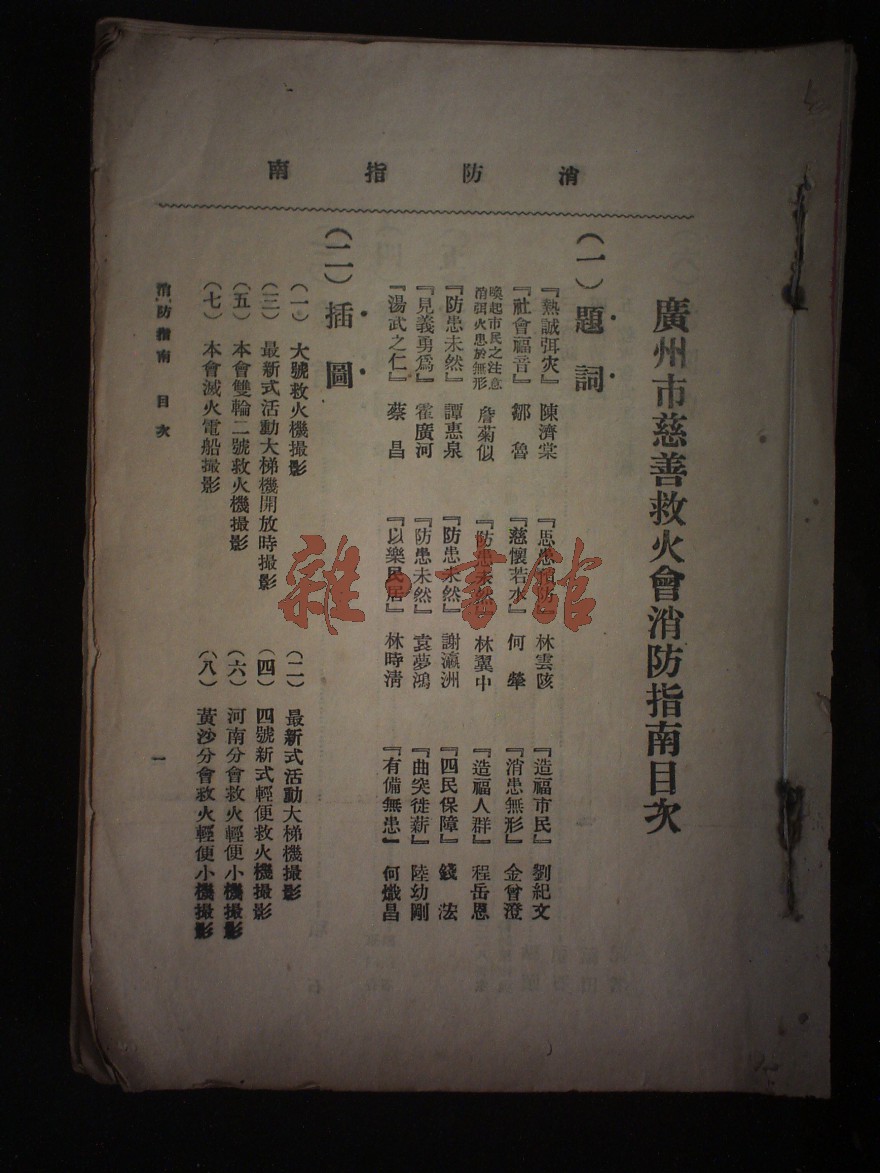 消防指南
廣州市慈善救火會消防指南目次
(一)題詞
『熱誠弭灾』 陳濟棠
林雲陔
『造福市民』 劉紀文
『社會福音』 鄒魯
『慈懷若水』 何犖
『消患無形』 金曾澄
喚起市民之注意
消弭火患於無形 詹菊似
『防患未然』 林翼中
『造福人群』 程岳恩
『防患未然』 譚惠泉
『防患未然』 謝瀛洲
『四民保障』 錢浤
『見義勇爲』 霍廣河
『防患未然』 袁夢鴻
『曲突徙薪』 陸幼剛
『湯武之仁』 蔡昌
『以樂民居』 林時清
『有備無患』 何熾昌
(二)插圖
(一) 大號救火機撮影
(二) 最新式活動大梯機撮影
(三) 最新式活動大梯機開放時撮影
(四) 四號新式輕便救火機撮影
(五) 本會雙輪二號救火機撮影
(六) 河南分會救火輕便小機撮影
(七) 本會滅火電船撮影
(八) 黃沙分會救火輕便小機撮影
消防指南 目次
一
雜·書館